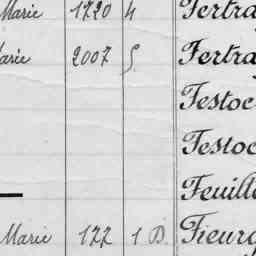 Marie 1720 4 Fertra
Marie 2007 5 Fertra
Festoc
Festoc
Feuill
Marie 122 1 B. Fieurg